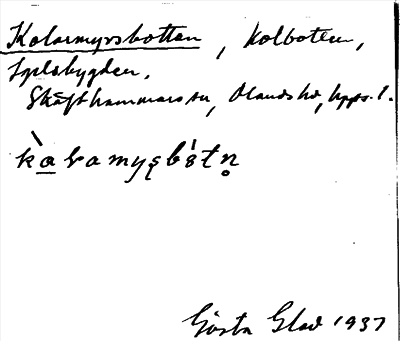 Kolarmyrsbotten, Kolbotten,
Sjelsbygden.
Skäfthammars sn, Olands hd, Upps. l.
Gösta Glad 1937